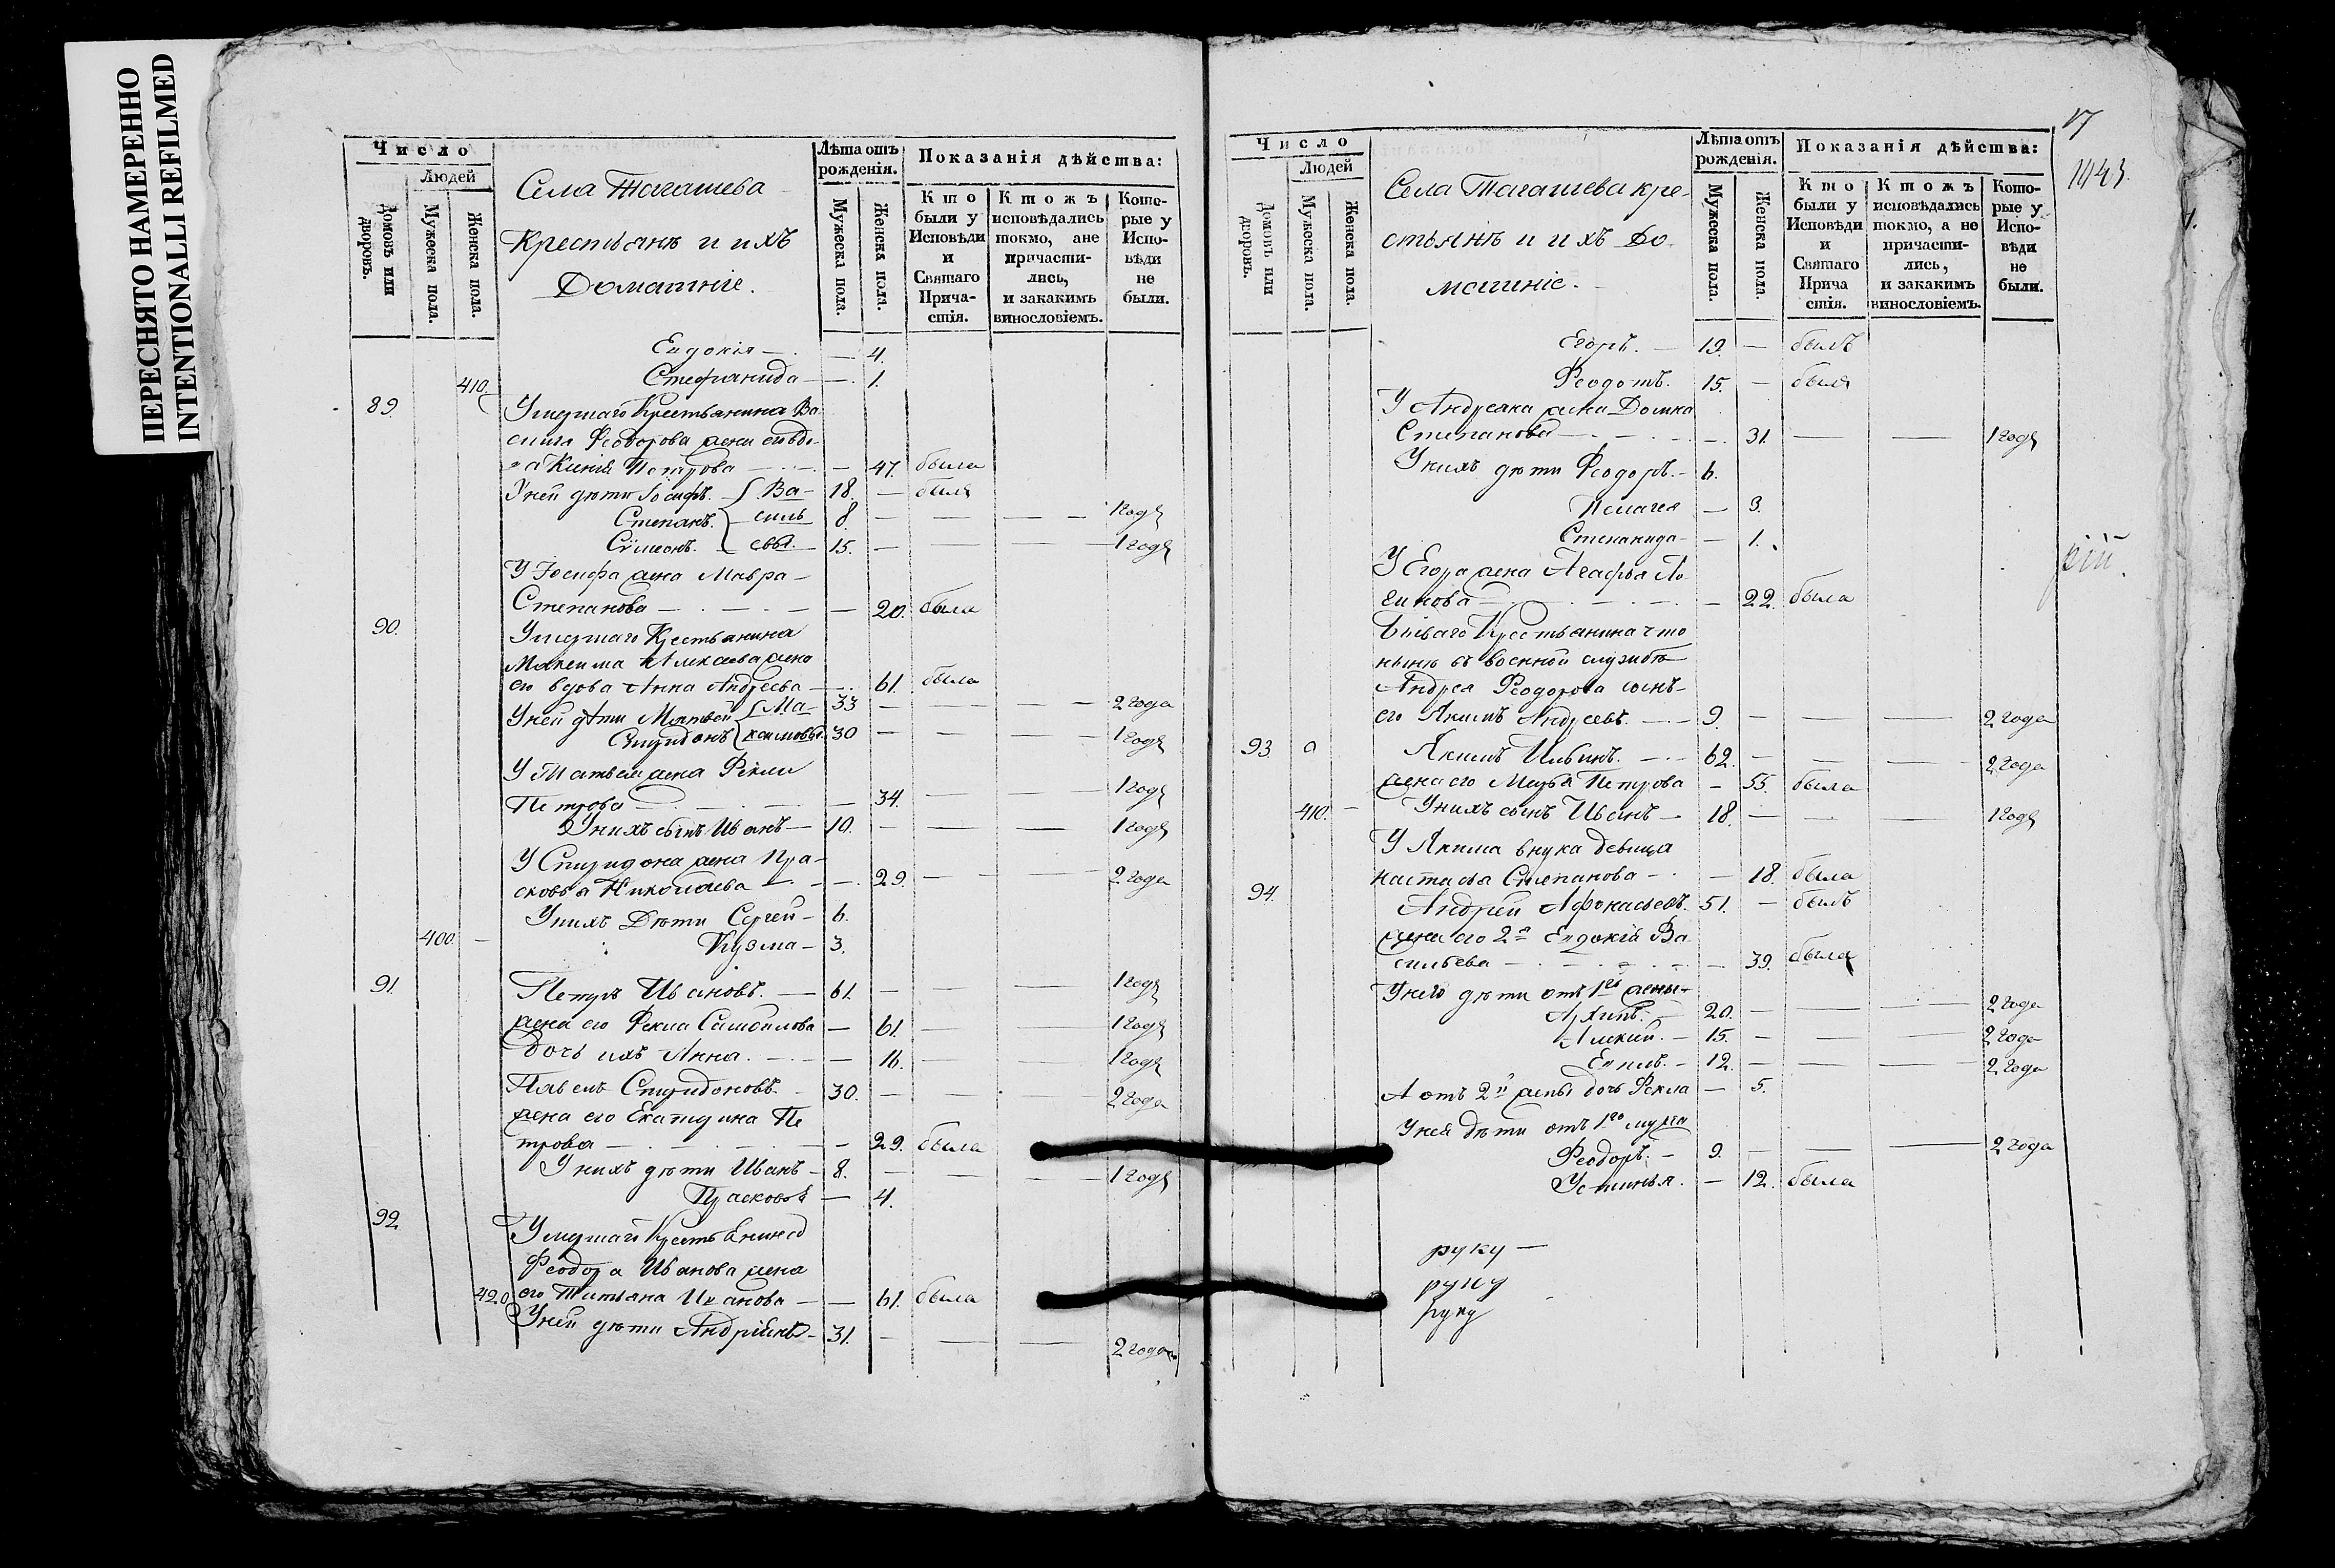 ПЕРЕСНЯТО НАМЕРЕННО
INTENTIONALLI REFILMED
Число
Людей
Домовъ или дворовъ.
Мужеска пола.
Женска пола.
Села Тагашева
Крестьянъ и ихъ
Домашніе.
Лѣта отъ рожденія.
Мужеска пола.
Женска пола.
Показанія дѣйства:
Кто были у Исповѣди и Святаго Прича-стія.
Ктожъ исповѣдались токмо, ане причасти-лись, и закакимъ винословіемъ.
Кото-рые у Испо-вѣди не были.
Евдокія — — 4.
410. Стефанида — — 1.
89. Умершаго Крестьянина Ва
силия Феодорова жена вдо-
Петрова — — 47. была
У ней дѣти Іосифъ. Ва- 18. — былъ
Степанъ. силь 8. — — — 1 годъ
Сѷмеонъ. евы. 15. — — — 1 годъ
У Іосифа жена Мавра —
Степанова — — 20. была
90. Умершаго Крестьянина
Максима Алексѣева жена
его вдова Анна Андреева — 61. была
У ней дѣти Матвей Ма- 33 — — — 2 года
Спиридонъ ксимовы 30 — — — 1 годъ
У Матвея жена Фекли
Петрова — — 34. — — 1 годъ
У нихъ сынъ Иванъ — 10. — — — 1 годъ
У Спиридона жена Пра-
сковья Николаева — — 29. — — 2 года
У нихъ Дѣти Сергей — 6.
400 — Кузма — 3.
91. Петръ Ивановъ. — 61. — — — 1 годъ
жена его Фекла Самойлова — 61. — — 1 годъ
дочь ихъ Анна. — — 16. — — 1 годъ
Павелъ Спиридоновъ. 30. — — — 2 года
жена его Екатерина Пе
трова — — 29. была
У нихъ дѣти Иванъ — 8. — — — 1 годъ
Прасковья — 4.
92. Умершаго Крестьянина
Феодора Иванова жена
420 его Татьяна Иванова — — 61. была
У ней дѣти Андріянъ — 31. — — — 2 года
17
1443.
Число
Людей
Домовъ или дворовъ.
Мужеска пола.
Женска пола.
Села Тагашева кре-
стьянъ и ихъ До-
машніе.
Лѣта отъ рожденія.
Мужеска пола.
Женска пола.
Показанія дѣйства:
Кто были у Исповѣди и Святаго Прича стія.
Ктожъ исповѣдались токмо, а не причасти-лись, и закакимъ винословіемъ.
Кото-рые у Испо-вѣди не были.
Егоръ. — 19. — былъ
Феодотъ. 15. — былъ
У Андреяна жена Домна
Степанова — — 31. — — 1 годъ
У нихъ дѣти Феодоръ. — 6.
Пелагея — 3.
Степанида — — 1.
рій.
У Егора жена Агафья Ло
гинова — — 22. была
Бывшаго Крестьянина что
нынѣ въ военной службѣ
Андрея Феодорова сынъ
его Якимъ Андреевъ. — 9. — — — 2 года
93 Якимъ Ильинъ. — 62. — — — 2 года
жена его Марья Петрова — 55. была
410. — У нихъ сынъ Иванъ — 18. — — — 1 годъ
У Якима внука девица
настасья Степанова — — 18. была
94. Андрей Афонасьевъ. 51. — былъ
жена его 2я Евдокія Ва
сильева — — 39. была
У него дѣти отъ 1ой жены
Архипъ. — 20. — — — 2 года
Алексѣй. — 15. — — — 2 года
12. — — — 2 года
А отъ 2й жены дочь Фекла — 5.
У ней дѣти отъ 1го мужа
Феодоръ. — 9. — — — 2 года
Устинья. — 12. была
руку —
руку
руку